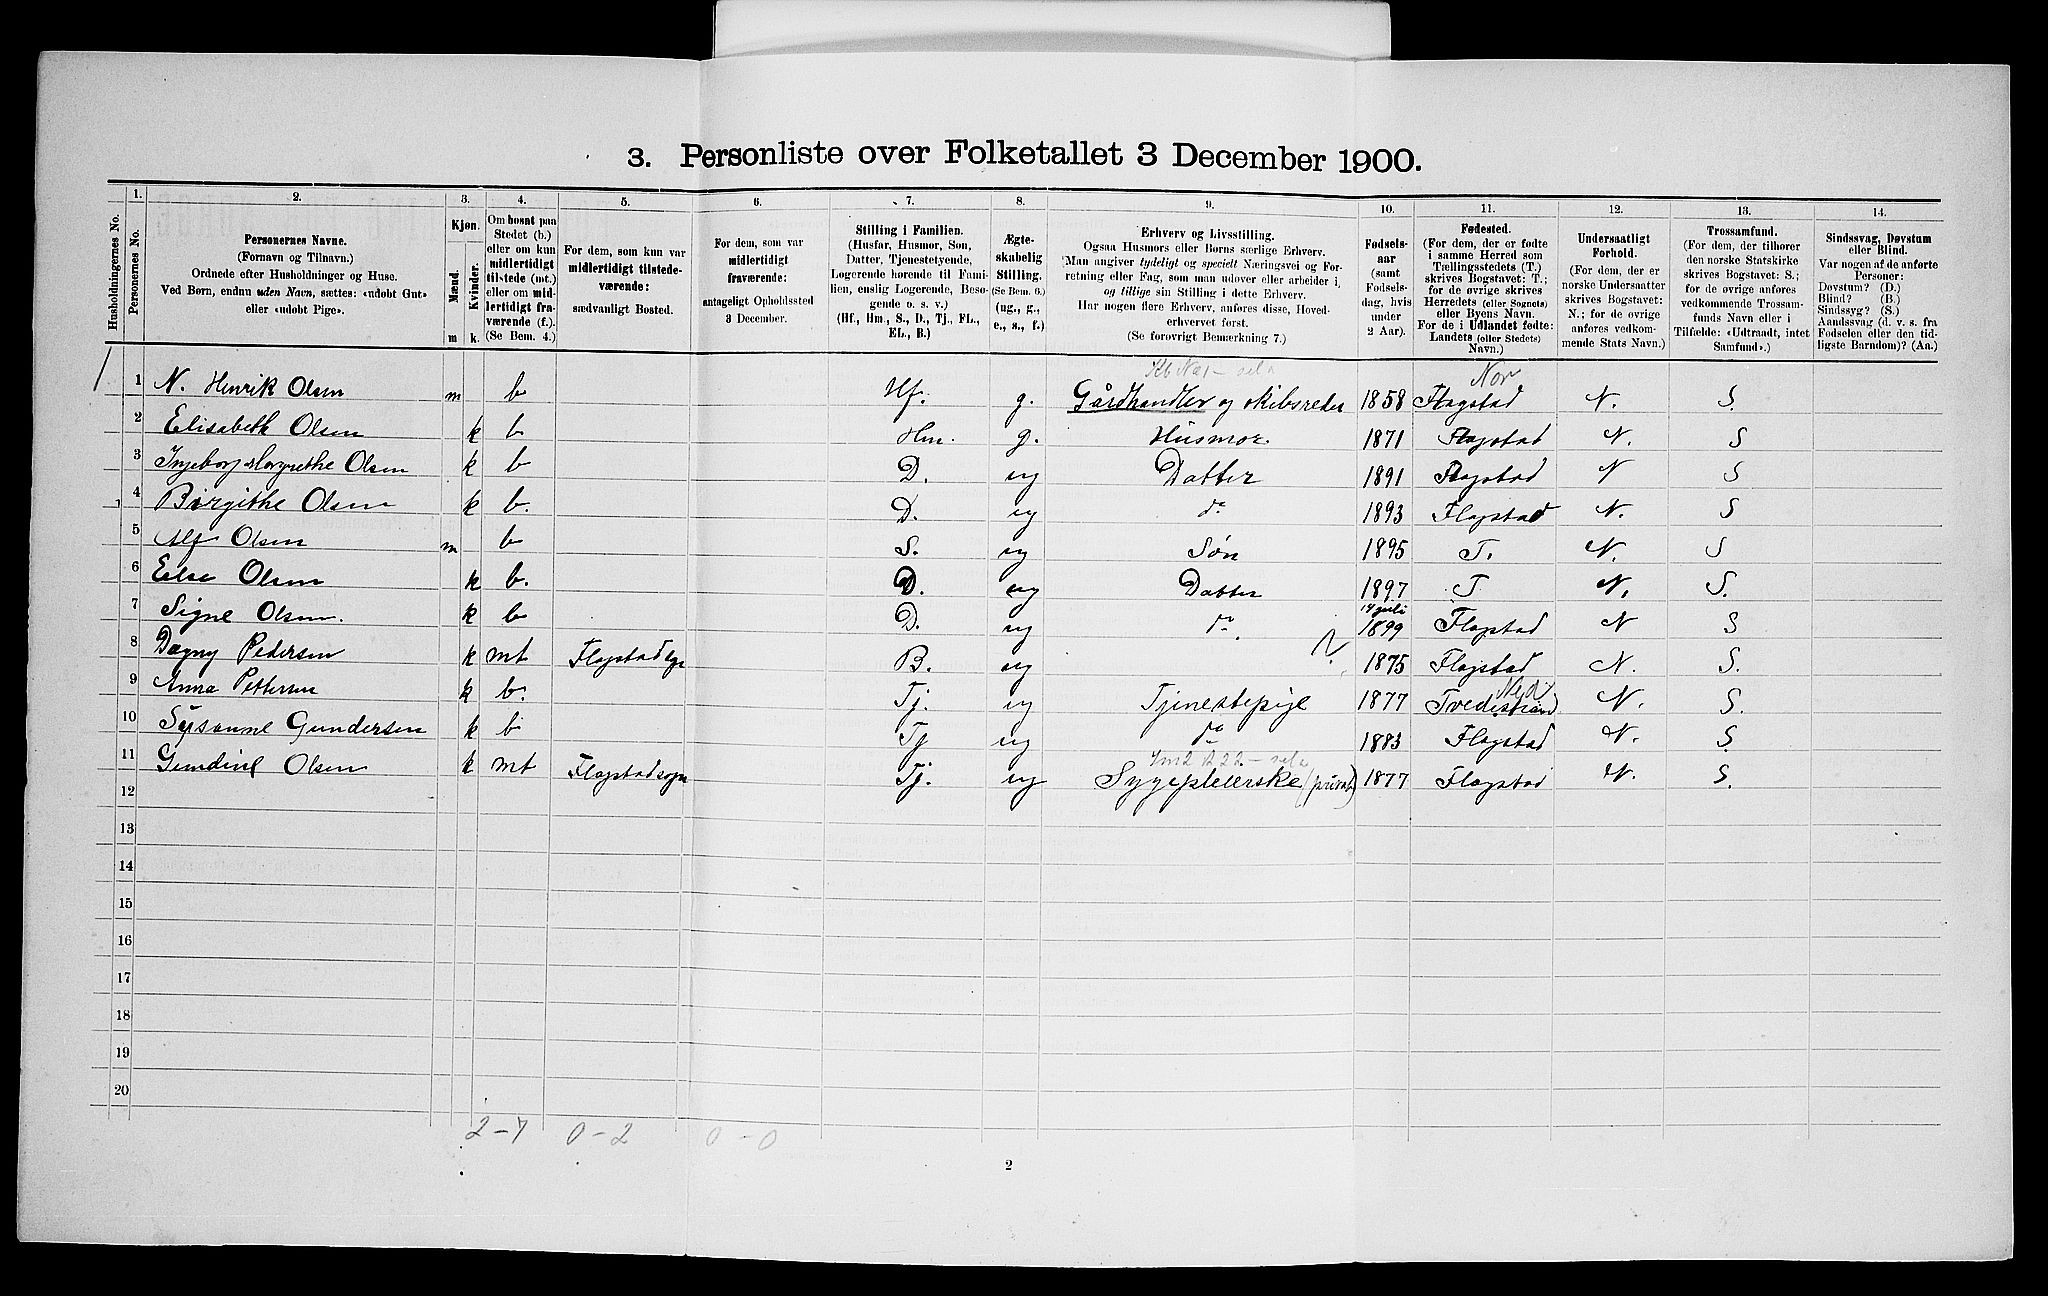 3. Personliste over Folketallet 3 December 1900.
Husholdningernes No.
1.
Personernes No.
2.
Personernes Navne.
(Fornavn og Tilnavn.)
Ordnede efter Husholdninger og Huse.
Ved Børn, endnu uden Navn, sættes: «udøbt Gut»
eller «udøbt Pige».
3.
Kjøn.
Mænd.
Kvinder.
m k.
4.
Om bosat paa
Stedet (b.)
eller om kun
midlertidigt
tilstede (mt.)
eller om mid-
lertidigt fra-
værende (f.).
(Se Bem. 4.)
5.
For dem, som kun var
midlertidigt tilstede-
værende:
sædvanligt Bosted.
6.
For dem, som var
midlertidigt
fraværende:
antageligt Opholdssted
3 December.
7.
Stilling i Familien.
(Husfar, Husmor, Søn,
Datter, Tjenestetyende,
Logerende hørende til Fami-
lien, enslig Logerende, Besø-
gende o. s. v.)
(Hf., Hm., S., D., Tj., FL.,
EL., B.)
8.
Ægte-
skabelig
Stilling.
(Se Bem. 6.)
(ug., g.,
e., s., f.)
9.
Erhverv og Livsstilling.
Ogsaa Husmors eller Børns særlige Erhverv.
Man angiver tydeligt og specielt Næringsvei og For-
retning eller Fag, som man udøver eller arbeider i,
og tillige sin Stilling i dette Erhverv.
Har nogen flere Erhverv, anføres disse, Hoved-
erhvervet først.
(Se forøvrigt Bemærkning 7.)
10.
Fødsels-
aar
(samt
Fødsels-
dag, hvis
under
2 Aar).
11.
Fødested.
(For dem, der er fødte
i samme Herred som
Tællingsstedets (T.)
skrives Bogstavet: T.;
for de øvrige skrives
Herredets (eller Sognets)
eller Byens Navn.
For de i Udlandet fødte:
Landets (eller Stedets)
Navn.)
12.
Undersaatligt
Forhold.
(For dem, der er
norske Undersaatter
skrives Bogstavet:
N.; for de øvrige
anføres vedkom-
mende Stats Navn.)
13.
Trossamfund.
(For dem, der tilhører
den norske Statskirke
skrives Bogstavet: S.;
for de øvrige anføres
vedkommende Trossam-
funds Navn eller i
Tilfælde: «Udtraadt, intet
Samfund».)
14.
Sindssvag, Døvstum
eller Blind.
Var nogen af de anførte
Personer:
Døvstum? (D.)
Blind? (B.)
Sindssyg? (S.)
Aandssvag (d. v. s. fra
Fødselen eller den tid-
ligste Barndom)? (Aa.)
Nor
1 1 N. Henrik Olsen m b Hf. g. Gårdhandler og skibsreder 1858 Flagstad N. S.
2 Elisabeth Olsen k b Hm. g. Husmor. 1871 Flagstad N. S
3 Ingeborg Margrethe Olsen k b D. ug Datter 1891 Flagstad N S
4 Birgithe Olsen k b. D. ug do 1893 Flagstad N. S
5 Alf Olsen m b S. ug Søn 1895 T. N. S
6 Else Olsen k b. D. ug Datter 1897 T N. S.
7 Signe Olsen. k b D. ug do 14 juli 1899 Flagstad N S
8 Dagny Pedersen k mt B. ug ? 1875 Flagstad N. S.
9 Anna Pettersen k b. Tj. ug Tjenestepige 1877 Tvedestrand N. S.
10 Sysanne Gundersen k b Tj ug do 1883 Flagstad N. S
11 Gundine Olsen k mt Flagstadsogn Tj. ug Sygepleierske (privat) 1877 Flagstad N. S.
12
13
14
15
16
17
18
19
20
2-7 0-2 0-0
2